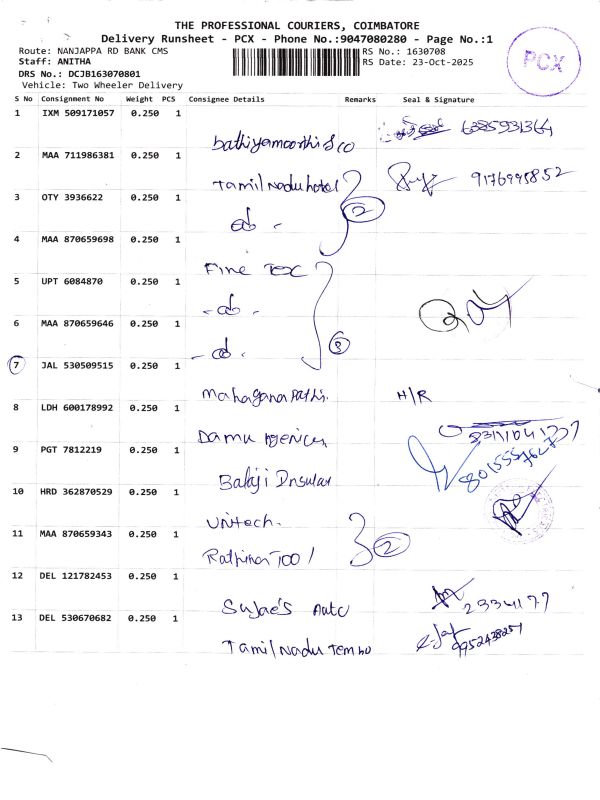 THE PROFESSIONAL COURIERS, COIMBATORE
Delivery Runsheet - PCX - Phone No.:9047080280 - Page No.:1
Route: NANJAPPA RD BANK CMS RS No.: 1630708
Staff: ANITHA RS Date: 23-Oct-2025
DRS No.: DCJB163070801
Vehicle: Two Wheeler Delivery
PCX
S No Consignment No Weight PCS Consignee Details Remarks Seal & Signature
1 IXM 509171057 0.250 1
bathiyamoorthi & co 6385931364
2 MAA 711986381 0.250 1
Tamil Nadu hotel 9176995852
3 OTY 3936622 0.250 1
- do - 2
4 MAA 870659698 0.250 1
Fine Tex
5 UPT 6084870 0.250 1
- do -
6 MAA 870659646 0.250 1
- do - 3
7 JAL 530509515 0.250 1
Mahaganapathi. H/R
8 LDH 600178992 0.250 1
Damu Agencies
9 PGT 7812219 0.250 1
Balaji Insulan
10 HRD 362870529 0.250 1
Unitech.
11 MAA 870659343 0.250 1
Rathina Tool 2
12 DEL 121782453 0.250 1
Sujae's Auto 2334177
13 DEL 530670682 0.250 1
Tamil Nadu Tempo 9952438257